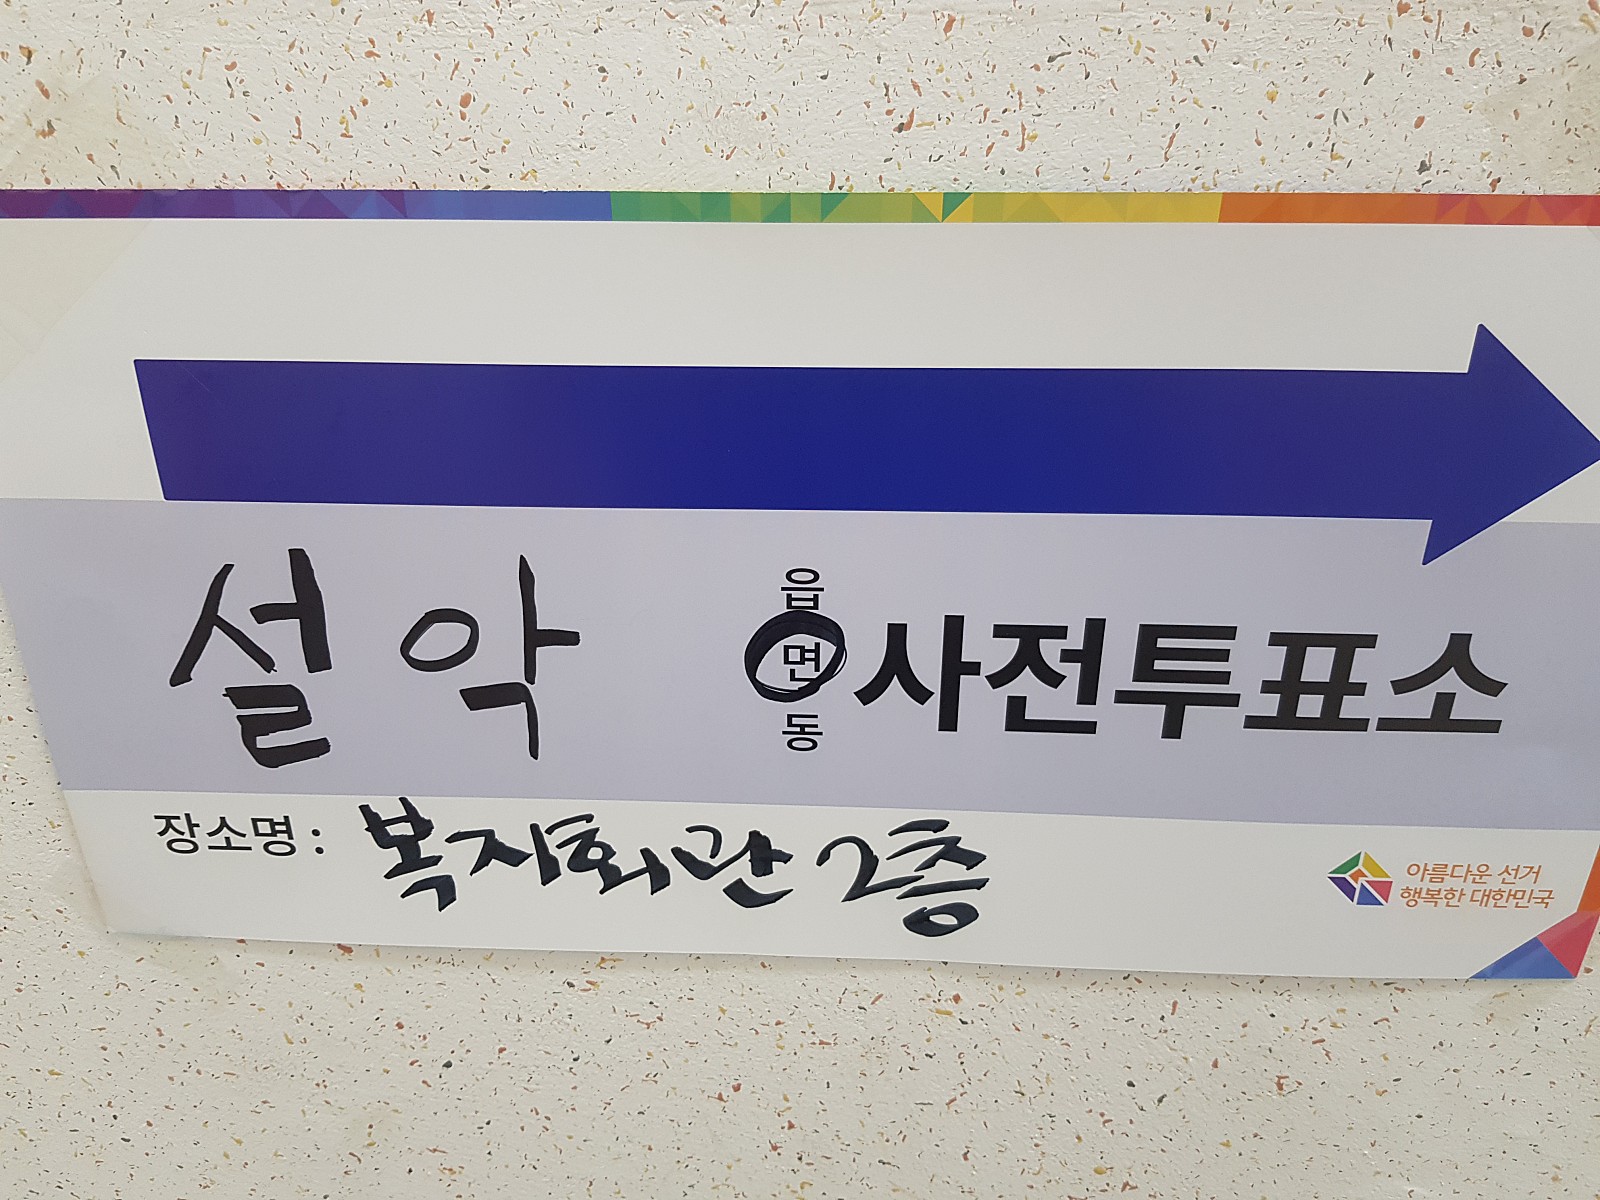 설악 읍면동 사전투표소
장소명: 복지회관 2층
아름다운 선거
행복한 대한민국